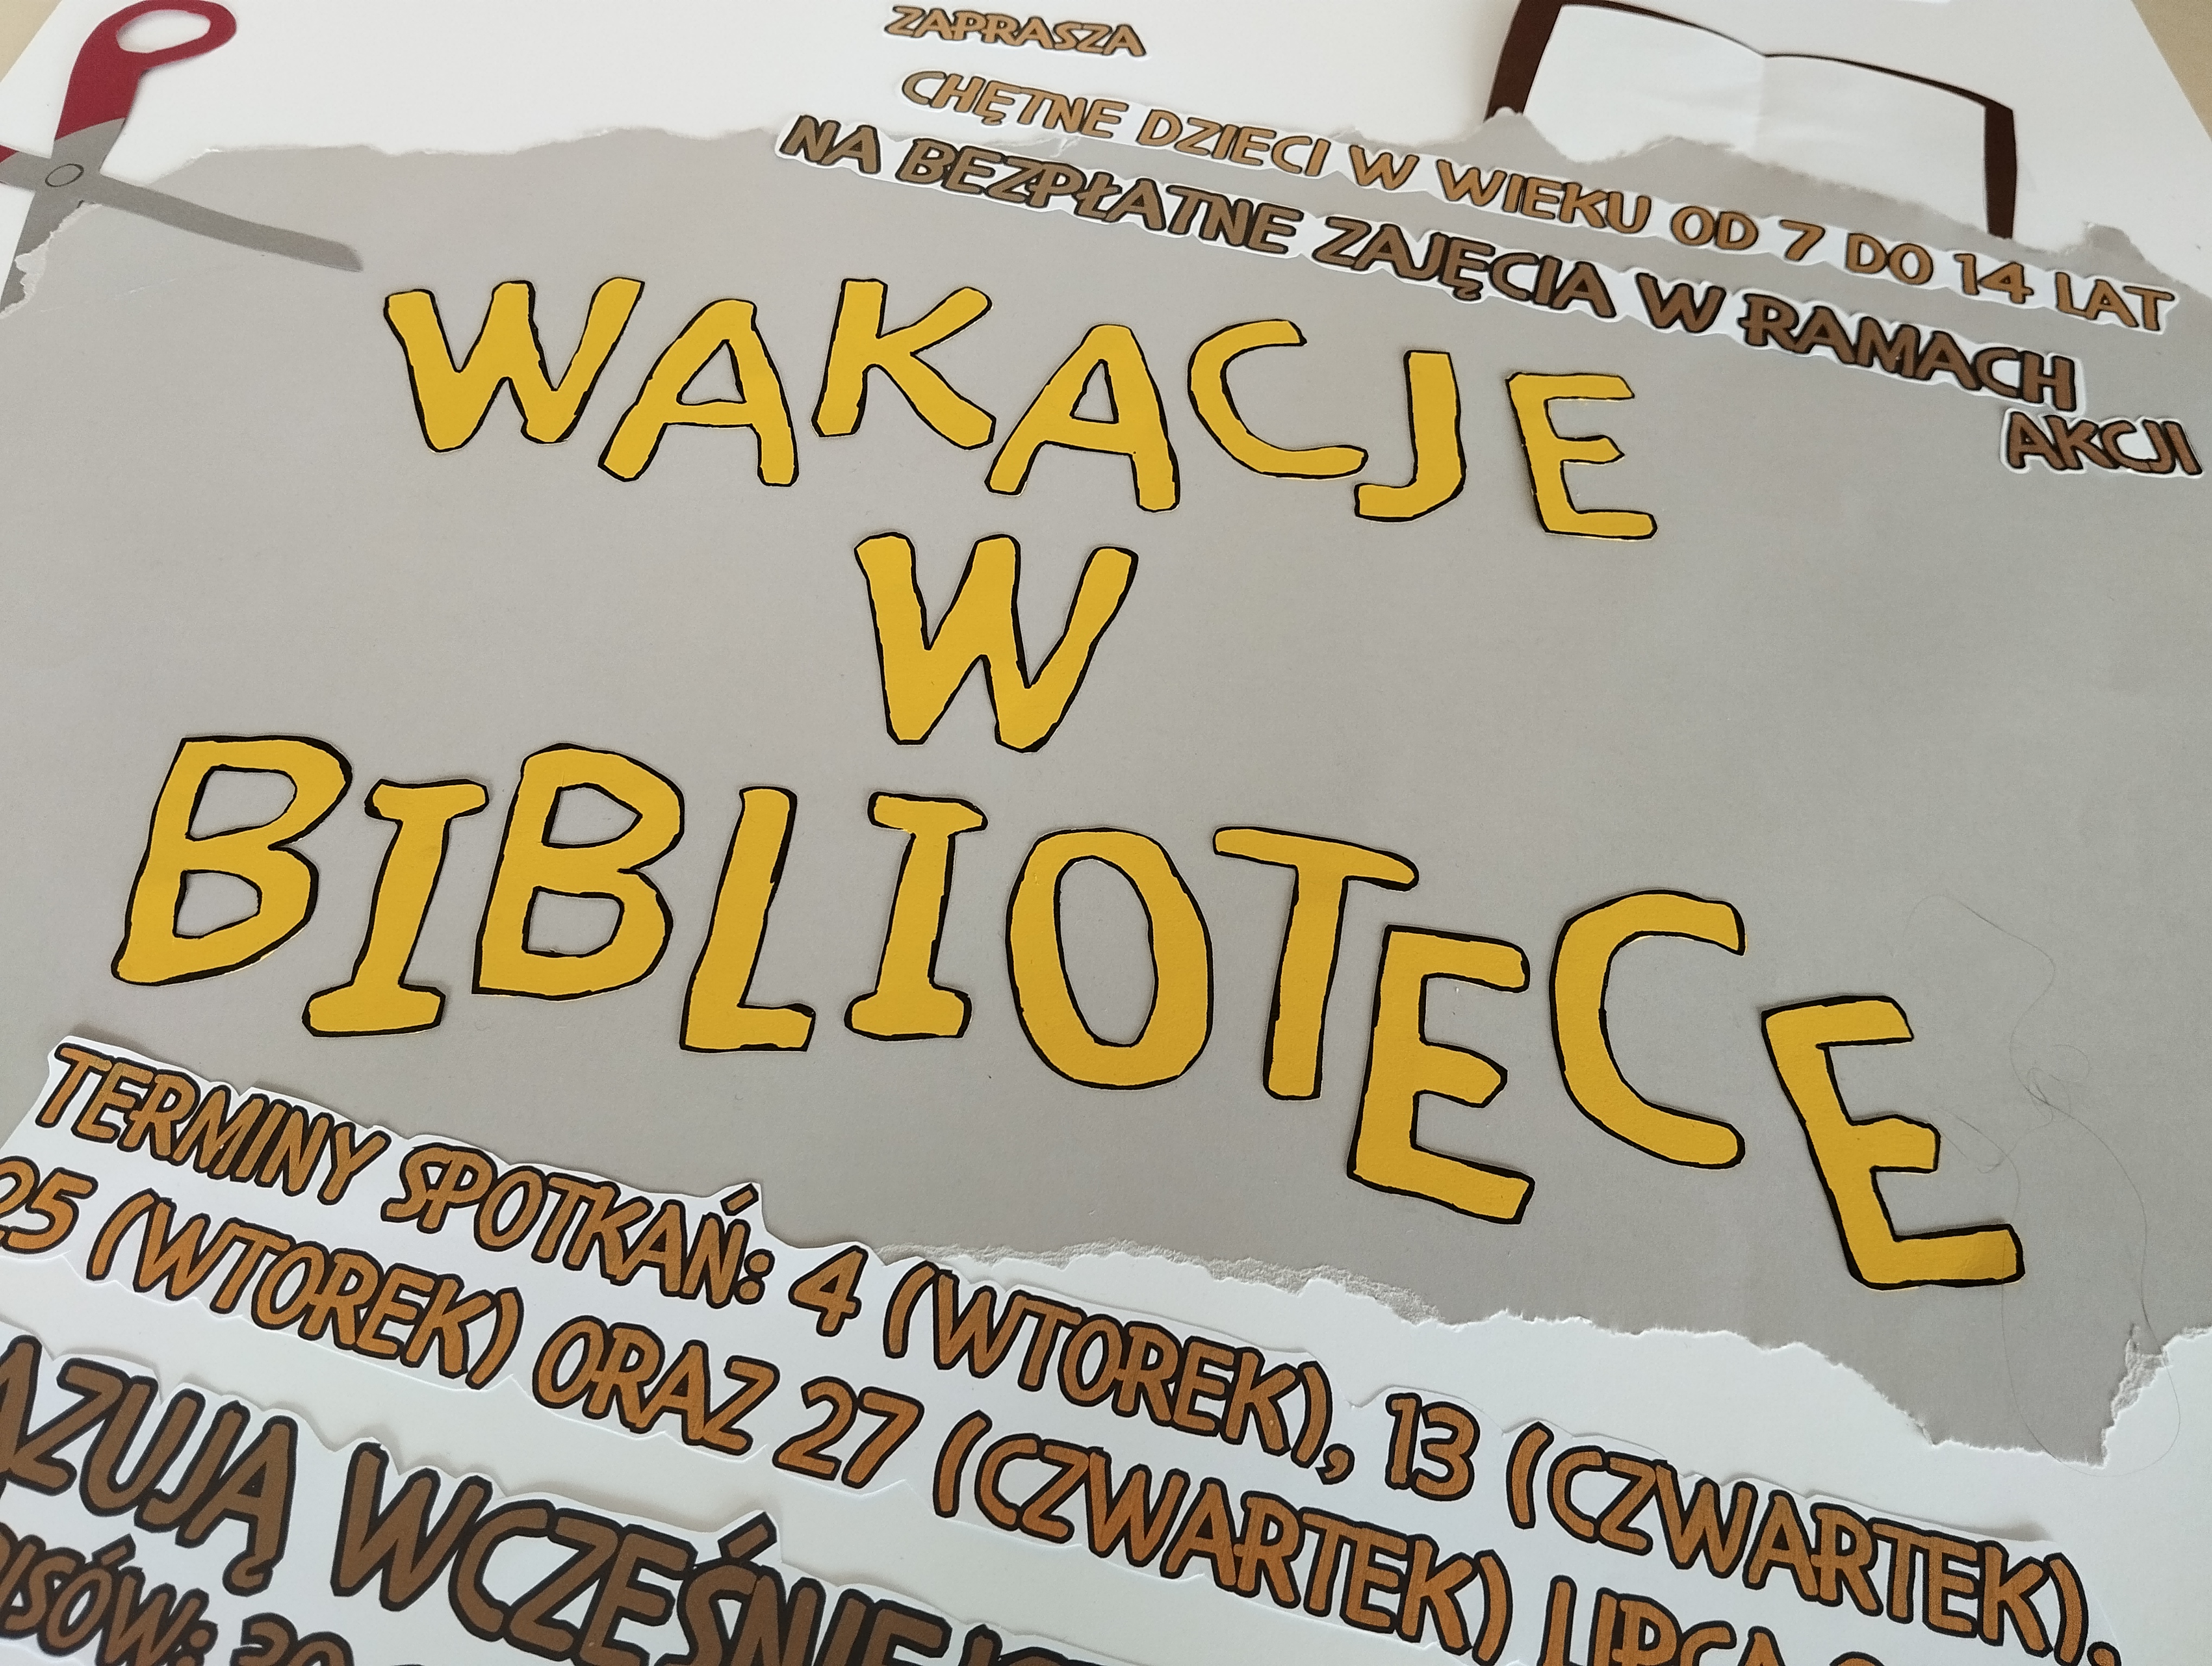 ZAPRASZA
CHĘTNE DZIECI W WIEKU OD 7 DO 14 LAT
NA BEZPŁATNE ZAJĘCIA W RAMACH
AKCJI
WAKACJE
W
BIBLIOTECE
TERMINY SPOTKAŃ: 4 (WTOREK), 13 (CZWARTEK),
25 (WTOREK) ORAZ 27 (CZWARTEK) LIPCA